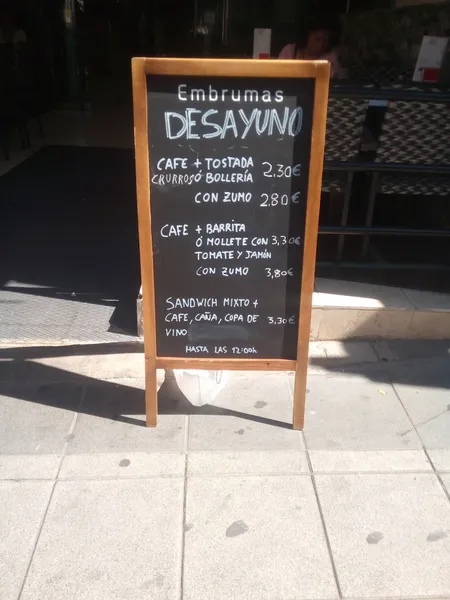 Embrumas
DESAYUNO
CAFE + TOSTADA 2.30€
CHURROS Ó BOLLERÍA
CON ZUMO 2.80€
CAFE + BARRITA
Ó MOLLETE CON 3,30€
TOMATE Y JAMÓN
CON ZUMO 3,80€
SANDWICH MIXTO +
CAFE, CAÑA, COPA DE 3.30€
VINO
HASTA LAS 12:00h